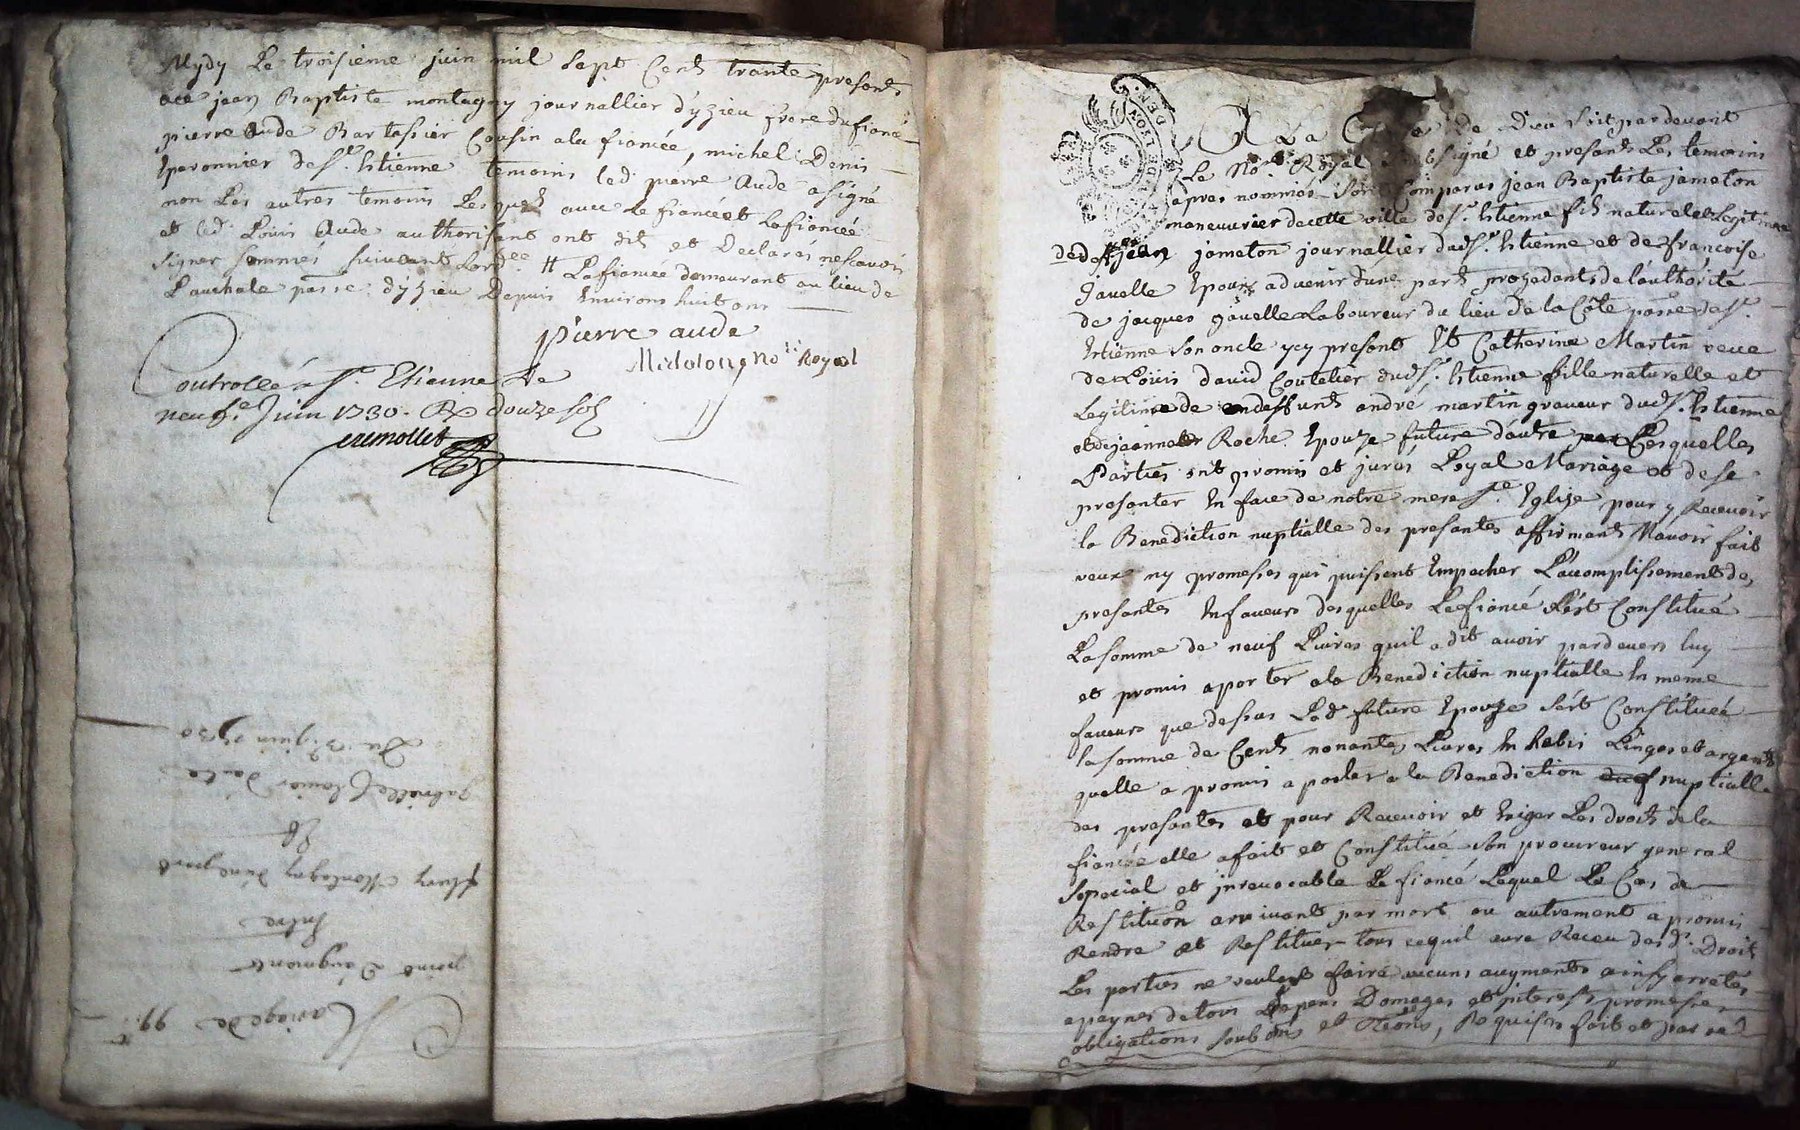 Mydy Le troisieme juin mil sept Cent trante presents
jean Baptiste montagny journallier d'yzieu frere du fiancé
pierre Aude Cousin a la fiancée, michel Denis
Eperonnier de St. Estienne temoins led. pierre Aude a signé
non Les autres temoins Lesquels avec Le fiancé et La fiancée
et led. Louis Aude authorisant ont dit et Declaré ne scavoir
signer sommés suivant Lord.ce # La fiancée demeurant au lieu de
passe. d'yzieu Depuis Environ huit ans
pierre aude
No.re Royal
Controllé a St. Etienne Le
neuf.e Juin 1730. Rx douze sols
Du 3e juin 1730
Et
fleury Montagny
Entre
point D'augment
Mariage de 99
A La de Dieu soit par devant
Le No.re Royal soubsigné et presents Les temoins
apres nommes Sont Comparus jean Baptiste jameton
maneuvrier de cette ville de St. Estienne fils naturel et Legitime
de deft. jean jameton journallier dud. St. Estienne et de francoise
javelle Epoux advenir dune part proçedant de l'authorité
de jacques javelle Laboureur du lieu de la Côte passe de St.
Estienne son oncle ycy present Et Catherine Martin veue
de Loüis david Coutelier dud. St. Estienne fille naturelle et
Legitime de deffunt andré martin graveur dud. St. Estienne
et de jeanne Roche Epouze future d'autre Lesquelles
Parties ont promis et juré Loyal Mariage et de se
presenter En face de notre mere Ste. Eglize pour y Recevoir
la Benediction nuptialle des presantes affirmant N'avoir fait
veux ny promesses qui puissent Empecher L'acomplissement des
presantes En faveurs desquelles Le fiancé s'est Constitué
La somme de neuf Livres quil a dit avoir pardevers luy
et promis aporter a la Benediction nuptialle En meme
faveurs que dessus Lad. future Epouze s'est Constituée
la somme de Cent nonante Livres En habis Linges et argent
quelle a promis aporter a la Benediction nuptialle
des presantes et pour Recevoir et Exiger Les droits de la
fiancée elle a fait et Constitué son procureur general
special et jrrevocable Le fiancé Lequel Le Cas de
Restitution arrivant par mort ou autrement a promis
Rendre et Restituer tout ce quil aura Receu desd. Droits
Les parties ne voulant faire aucuns augments ainsy arretés
a peynes de tous Depens Domages et jnterests promesses
obligations soubmons et Reons, Requises fait et passé